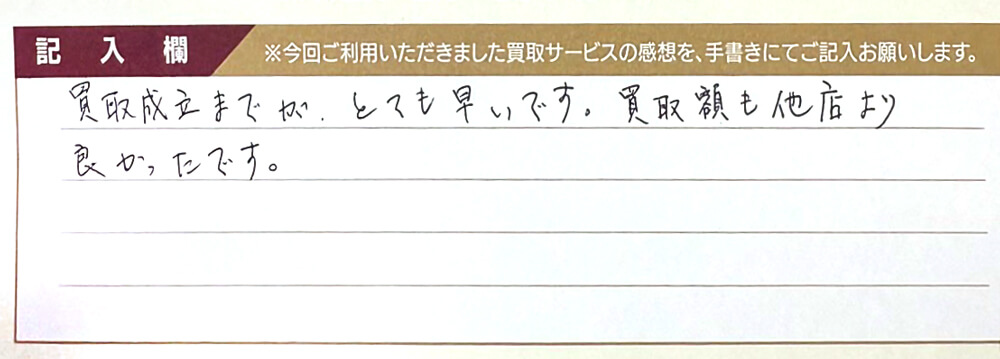 記入欄 ※今回ご利用いただきました買取サービスの感想を、手書きにてご記入お願いします。
買取成立までが、とても早いです。買取額も他店より
良かったです。